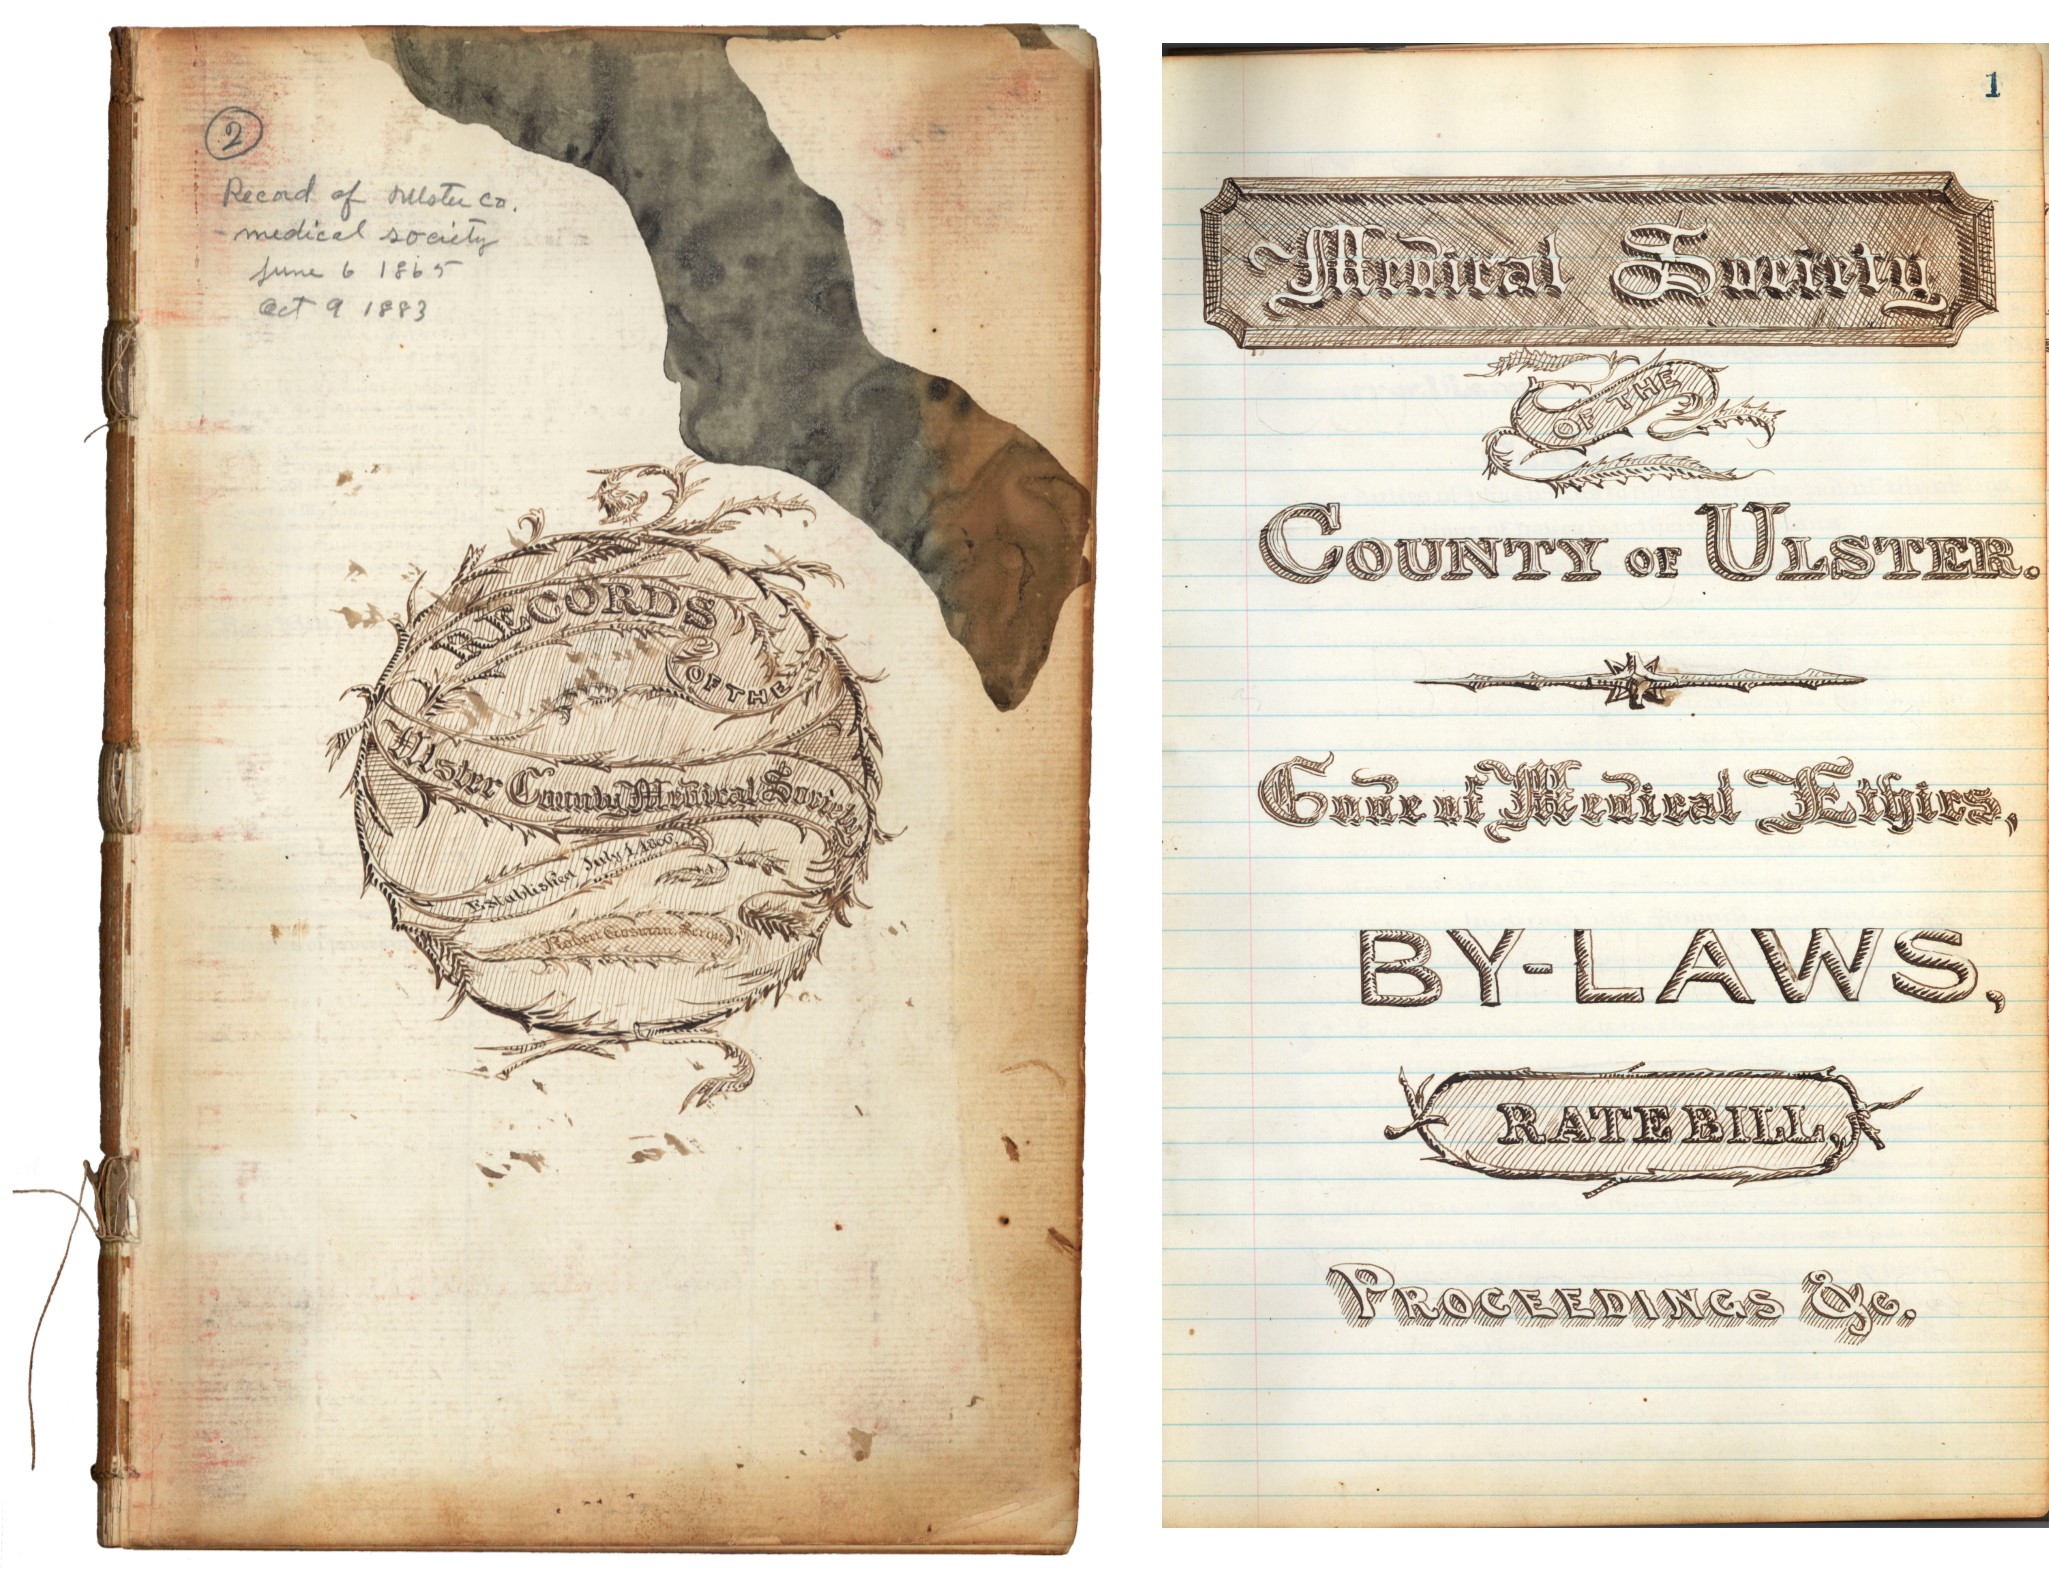 2
Record of Ulster Co.
medical society
June 6 1865
Oct 9 1883
RECORDS
OF THE
Ulster County Medical Society
Established July 1, 1806,
Robert Gosman,
1
Medical Society
OF THE
COUNTY OF ULSTER.
Code of Medical Ethics,
BY-LAWS,
RATE BILL,
PROCEEDINGS &c.